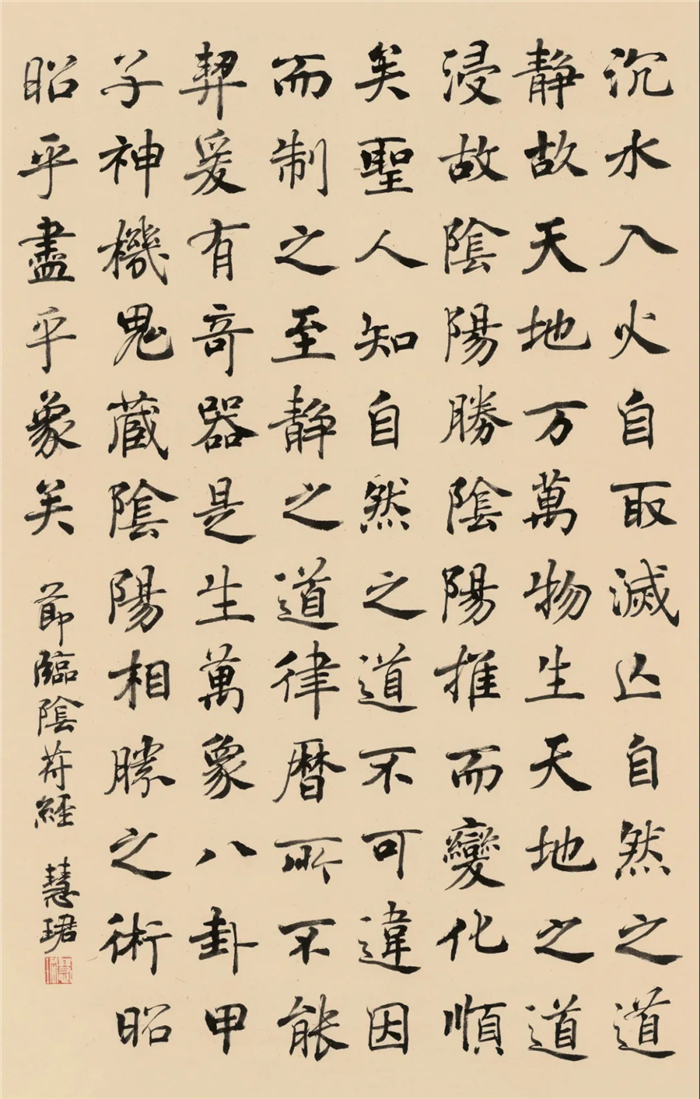 沉水入火自取滅亾自然之道
静故天地万萬物生天地之道
浸故陰陽勝陰陽推而變化順
矣聖人知自然之道不可違因
而制之至静之道律暦所不能
契爰有奇器是生萬象八卦甲
子神機鬼藏陰陽相勝之術昭
昭乎盡乎象矣 節臨陰苻經 慧珺